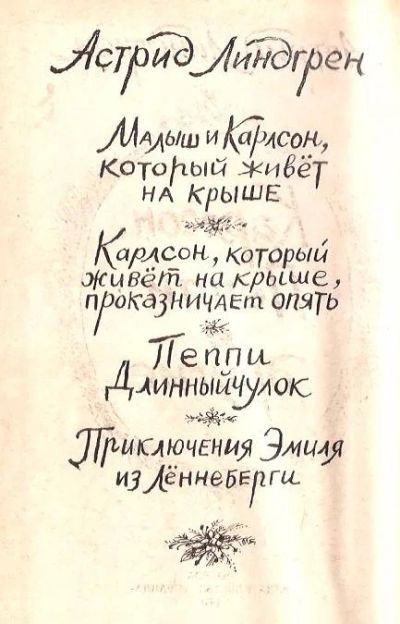 Астрид Линдгрен
Малыш и Карлсон,
который живёт
на крыше
Карлсон, который
живёт на крыше,
проказничает опять
Пеппи
Длинныйчулок
Приключения Эмиля
из Лённеберги